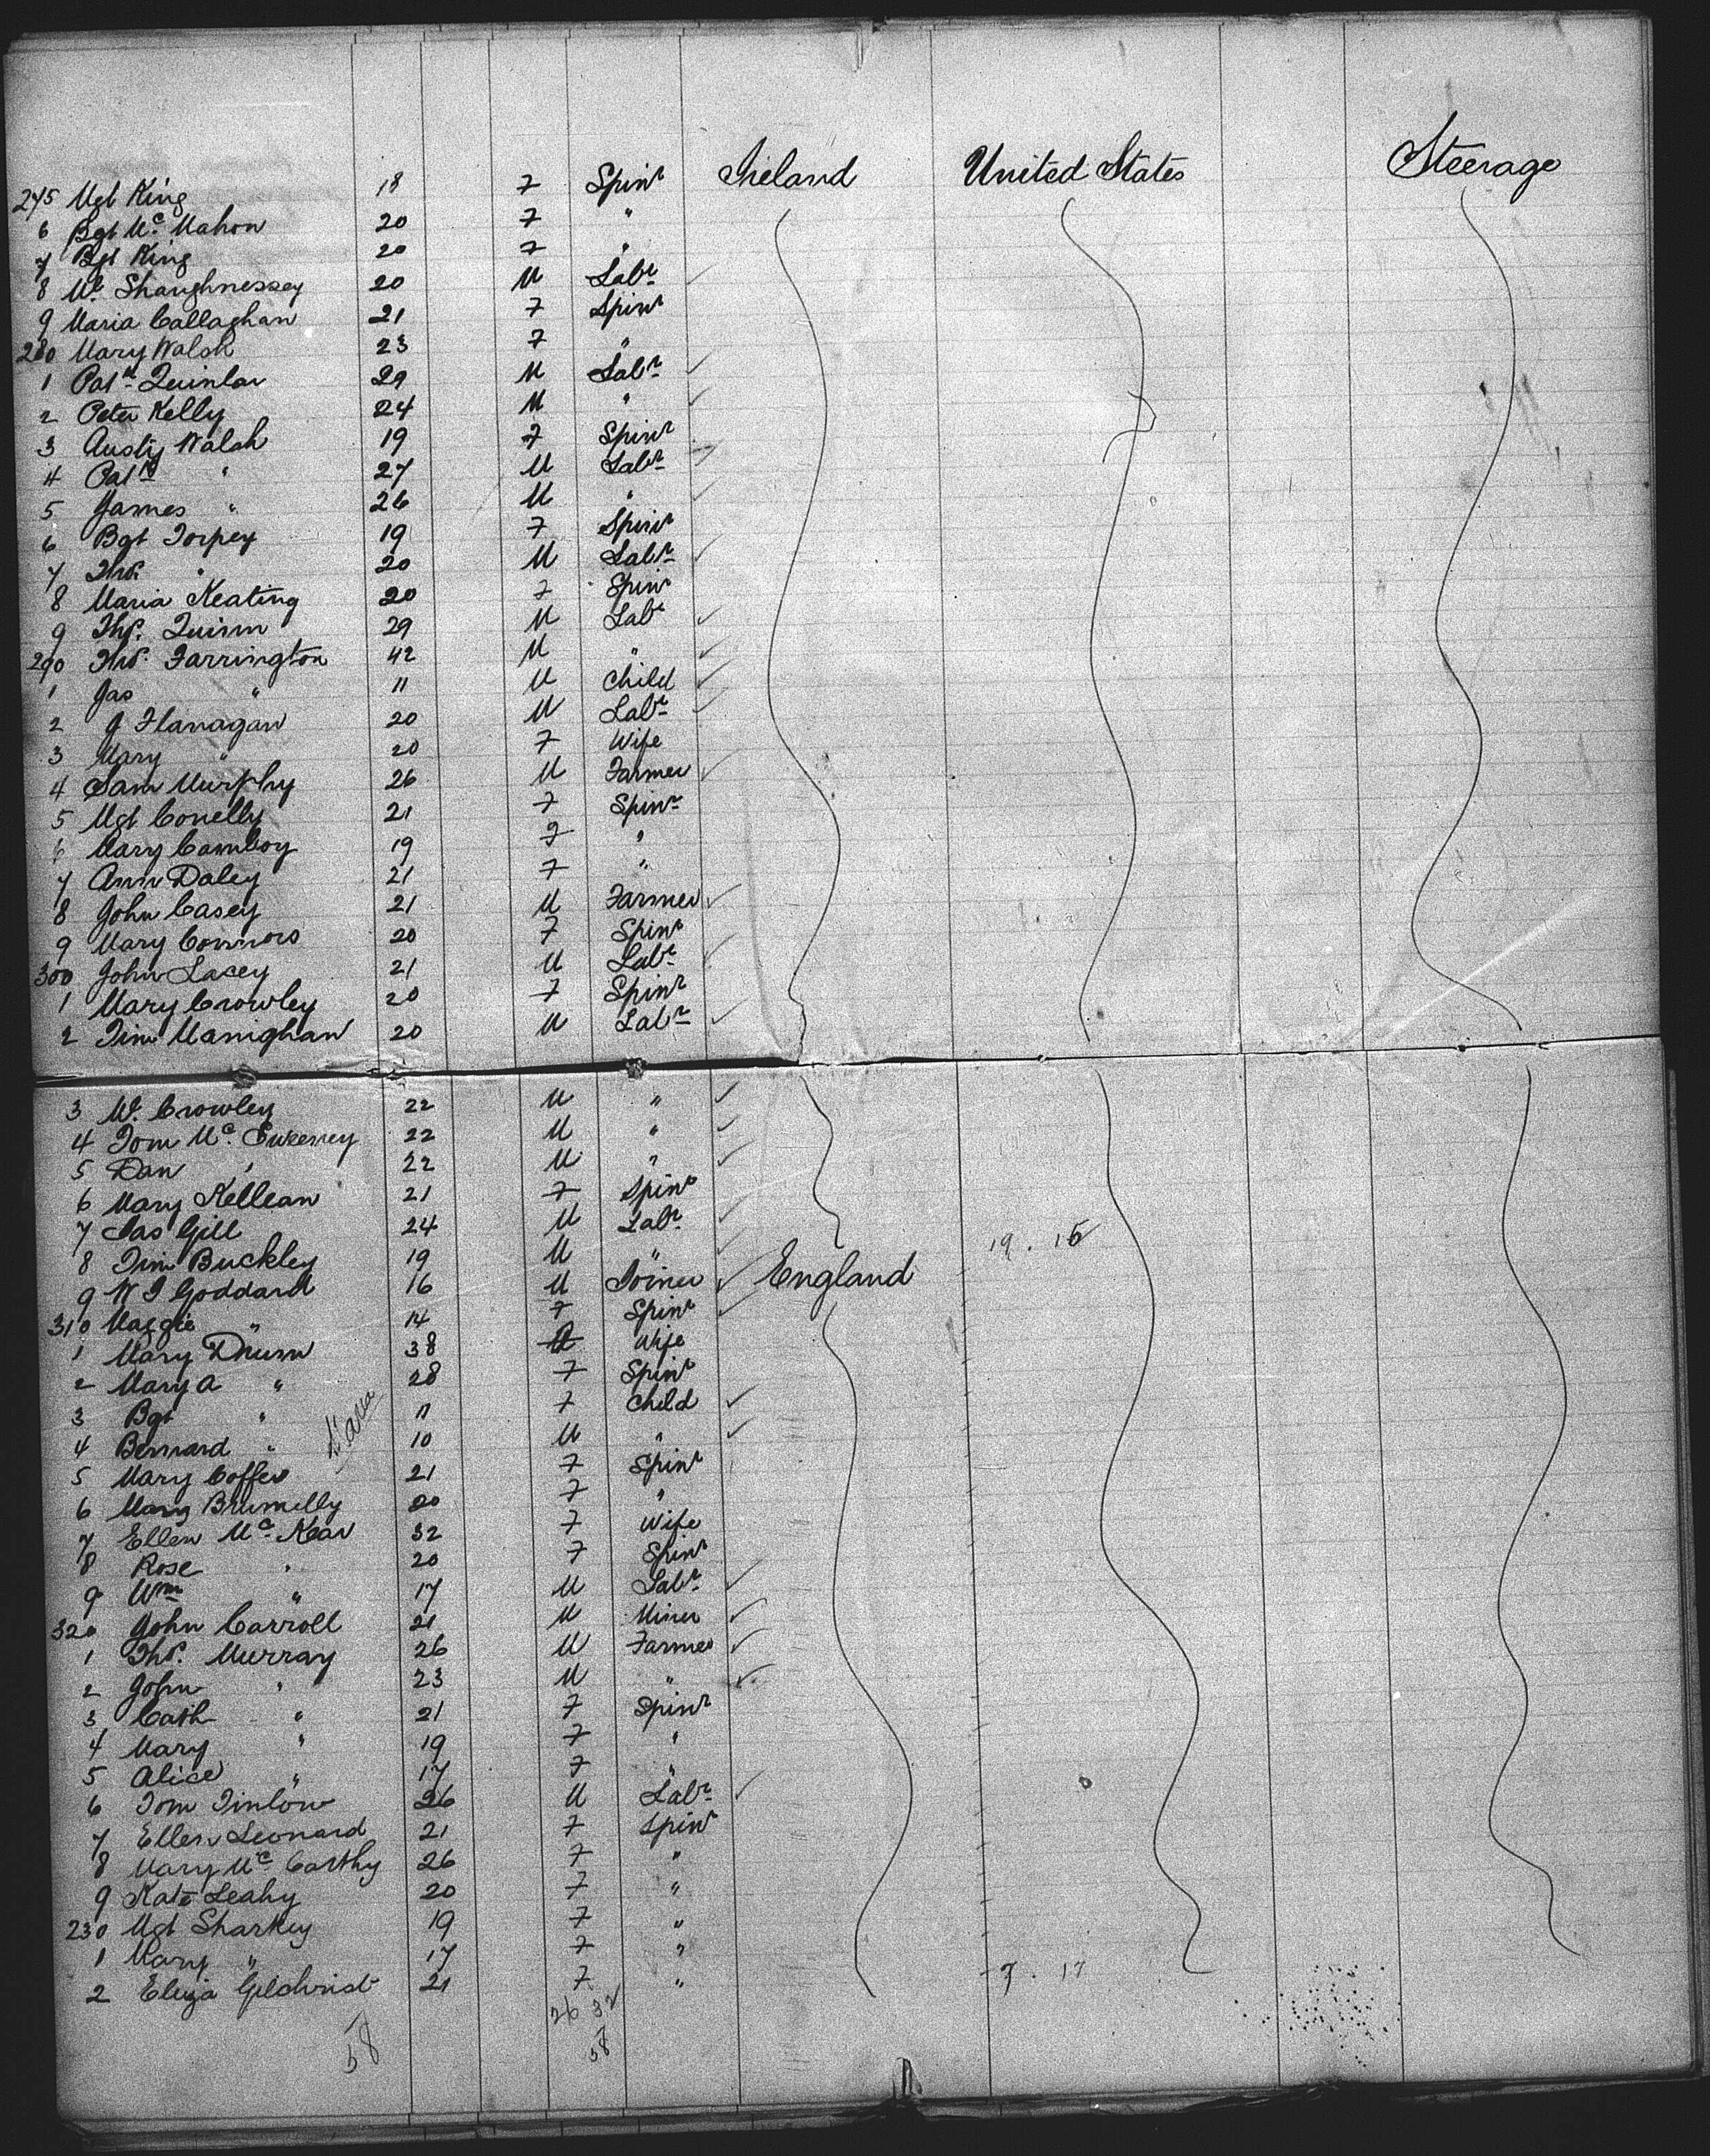 275 Mgt King 18 F Spinr Ireland United States Steerage
6 Bgt Mc Mahon 20 F "
7 Bgt King 20 F "
8 Ml Shaughnessey 20 M Labr
9 Maria Callaghan 21 F Spinr
280 Mary Walsh 23 F "
1 Patk Quinlan 29 M Labr
2 Peter Kelly 24 M "
3 Austy Walsh 19 F Spinr
4 Patk " 27 M Labr
5 James " 26 M "
6 Bgt Torpey 19 F Spinr
7 Ths. " 20 M Labr
8 Maria Keating 20 F Spinr
9 Ths. Quinn 29 M Labr
290 Ths. Farrington 42 M "
1 Jas " 11 M Child
2 J Flanagan 20 M Labr
3 Mary " 20 F Wife
4 Sam Murphy 26 M Farmer
5 Mgt Conelly 21 F Spinr
6 Mary 19 F "
7 Ann Daley 21 F "
8 John Casey 21 M Farmer
9 Mary Connors 20 F Spinr
300 John Lacey 21 M Labr
1 Mary Crowley 20 F Spinr
2 Tim Manighan 20 M Labr
3 W. Crowley 22 M "
4 Tom Mc. Sweeney 22 M "
5 Dan " 22 M "
6 Mary Kellean 21 F Spinr
7 Jas Gill 24 M Labr
8 Tim Buckley 19 M " 19 . 15
9 W J Goddard 16 M Joiner England
310 Maggie " 14 F Spinr
1 Mary Drumm 38 Wife
2 Mary A " 28 F Spinr
3 Bgt " 11 F Child
4 Bernard " 10 M "
5 Mary Coffee 21 F Spinr
6 Mary Brumelly 20 F "
7 Ellen Mc Kear 32 F Wife
8 Rose " 20 F Spinr
9 Wm " 17 M Labr
320 John Carroll 21 M Miner
1 Ths. Murray 26 M Farmer
2 John " 23 M "
3 Cath " 21 F Spinr
4 Mary " 19 F "
5 Alice " 17 F "
6 Tom Tinlow 26 M Labr
7 Ellen Leonard 21 F Spinr
8 Mary Mc Carthy 26 F "
9 Kate Leahy 20 F "
230 Mgt Sharkey 19 F "
1 Mary " 17 F "
2 Eliza Gilchrist 21 F " 7 . 17
26 32
58 58